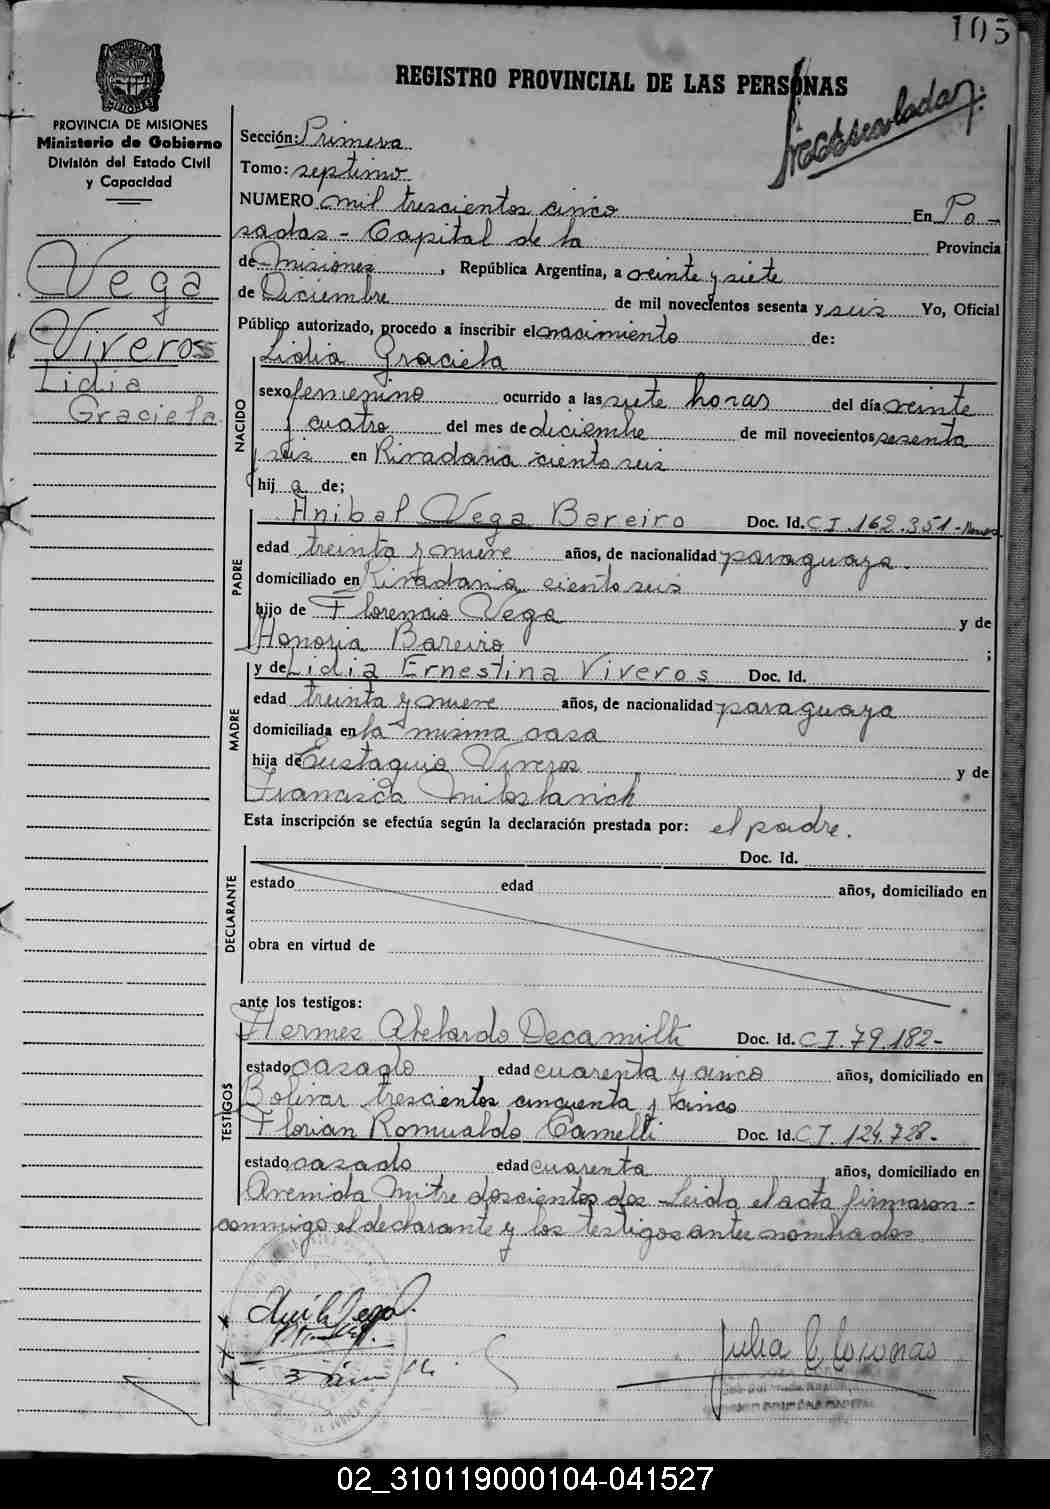 105
REGISTRO PROVINCIAL DE LAS PERSONAS
PROVINCIA DE MISIONES
Ministerio de Gobierno
División del Estado Civil
y Capacidad
Vega
Viveros
Lidia
Graciela
Sección: Primera
Tomo: septimo
NUMERO mil trescientos cinco En Po-
sadas - Capital de la Provincia
de Misiones, República Argentina, a veinte y siete
de Diciembre de mil novecientos sesenta y seis Yo, Oficial
Público autorizado, procedo a inscribir el nacimiento de:
Lidia Graciela
NACIDO
sexo femenino ocurrido a las siete horas del día veinte
y cuatro del mes de diciembre de mil novecientos sesenta
y seis en Rivadavia ciento seis
hij a de;
PADRE
Anibal Vega Bareiro Doc. Id. C I. 162.351 -
edad treinta y nueve años, de nacionalidad paraguaya.
domiciliado en Rivadavia ciento seis
hijo de Florencio Vega y de
Honoria Bareiro ;
MADRE
y de Lidia Ernestina Viveros Doc. Id.
edad treinta y nueve años, de nacionalidad paraguaya
domiciliada en la misma casa
hija de Eustaquio Viveros y de
Francisca Miloslavich
Esta inscripción se efectúa según la declaración prestada por: el padre.
DECLARANTE
Doc. Id.
estado edad años, domiciliado en
obra en virtud de
ante los testigos:
TESTIGOS
Hermes Abelardo Decamilli Doc. Id. C I. 79.182-
estado casado, edad cuarenta y cinco años, domiciliado en
Bolivar trescientos cincuenta y cinco
Florian Romualdo Camelli Doc. Id. C I. 124.728-
estado casado edad cuarenta años, domiciliado en
Avenida Mitre doscientos dos - Leida el acta firmaron-
conmigo el declarante y los testigos antes nombrados
02_310119000104-041527